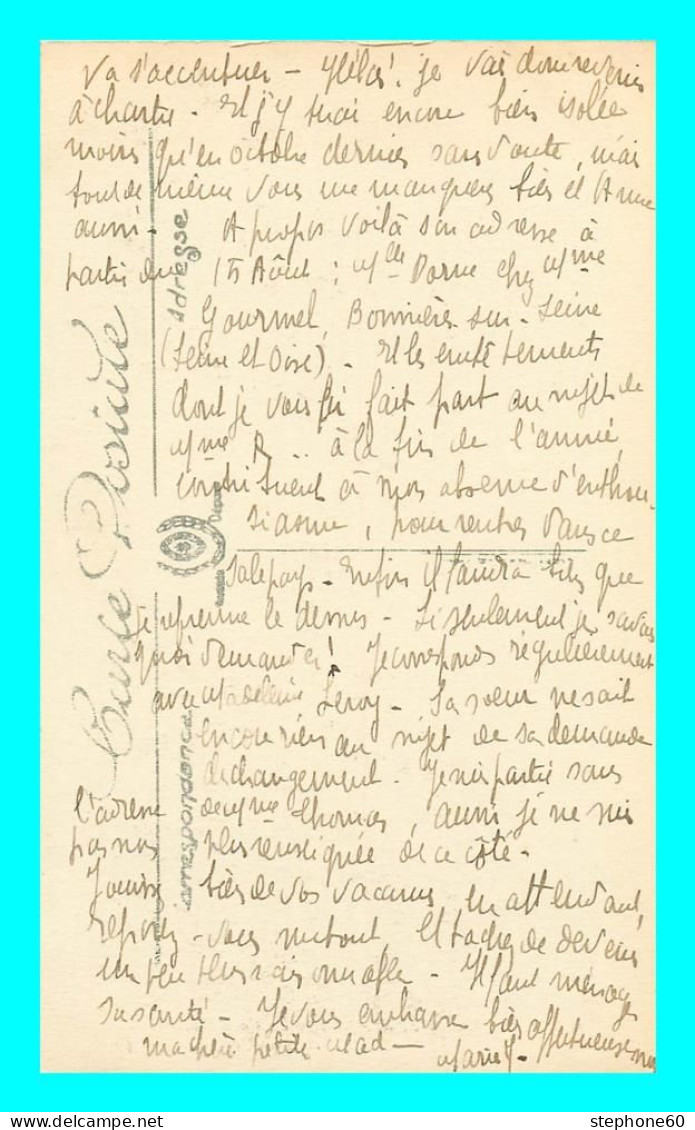 va s'accentuer - Hélas! je vais donc revenir
à Chartres - Et j'y serai encore bien isolée
moins qu'en octobre dernier sans doute, mais
tout de même vous me manquerez bien et Anne
aussi - A propos voilà son adresse à
partir du 15 Août : Mlle Dorne chez Mme
Gourmel, Bonnières-sur-Seine
(Seine et Oise) - Et les embêtements
dont je vous ai fait part au sujet de
Mme R... à la fin de l'année,
contribuent à mon absence d'enthou-
siasme, pour rentrer dans ce
sale pays - Enfin il faudra bien que
je reprenne le dessus - Si seulement je savais
quoi demander! Je corresponds régulièrement
avec Madeleine Leroy - Sa sœur ne sait
encore rien au sujet de sa demande
de changement - Je suis partie sans
l'adresse de Mme Thomas, aussi je ne suis
pas non plus renseignée de ce côté -
Jouissez bien de vos vacances, en attendant,
reposez-vous surtout, et tachez de devenir
un peu plus raisonnable - Il faut ménager
sa santé - Je vous embrasse bien affectueusement
ma chère petite Mad - Marie Y -
Carte Postale
adresse
correspondance
stephone60